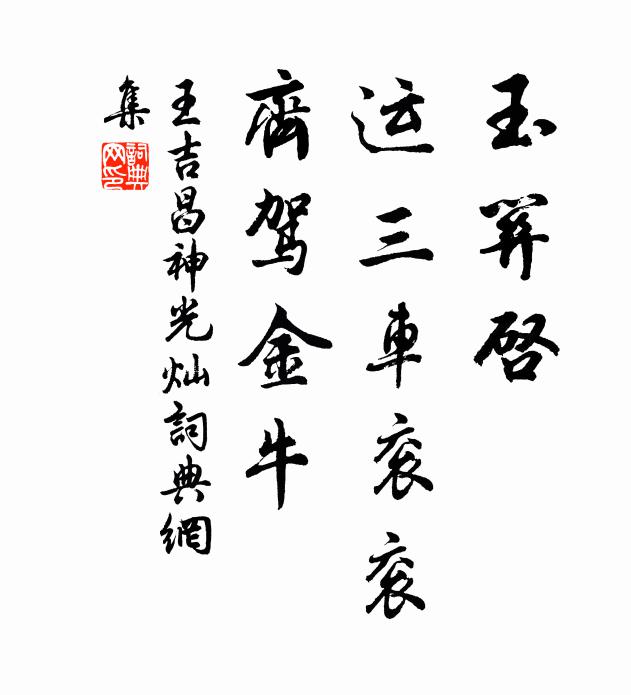 玉笄启
运三車衮衮
齊驾金牛
王吉昌神光灿詞典網
集
詞典
网印